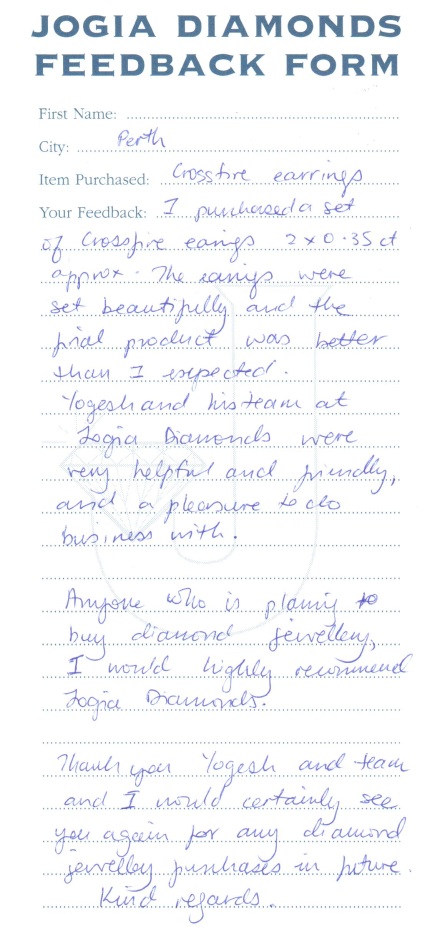 JOGIA DIAMONDS
FEEDBACK FORM
First Name:
City: Perth
Item Purchased: Crossfire earrings
Your Feedback: I purchased a set
of Crossfire earings 2 x 0.35 ct
approx. The earings were
set beautifully and the
final product was better
than I expected.
Yogesh and his team at
Jogia Diamonds were
very helpful and friendly,
and a pleasure to do
business with.
Anyone who is planing to
buy diamond jewellery,
I would highly recommend
Jogia Diamonds.
Thank you Yogesh and team
and I would certainly see
you again for any diamond
jewelley purchases in future.
Kind regards.